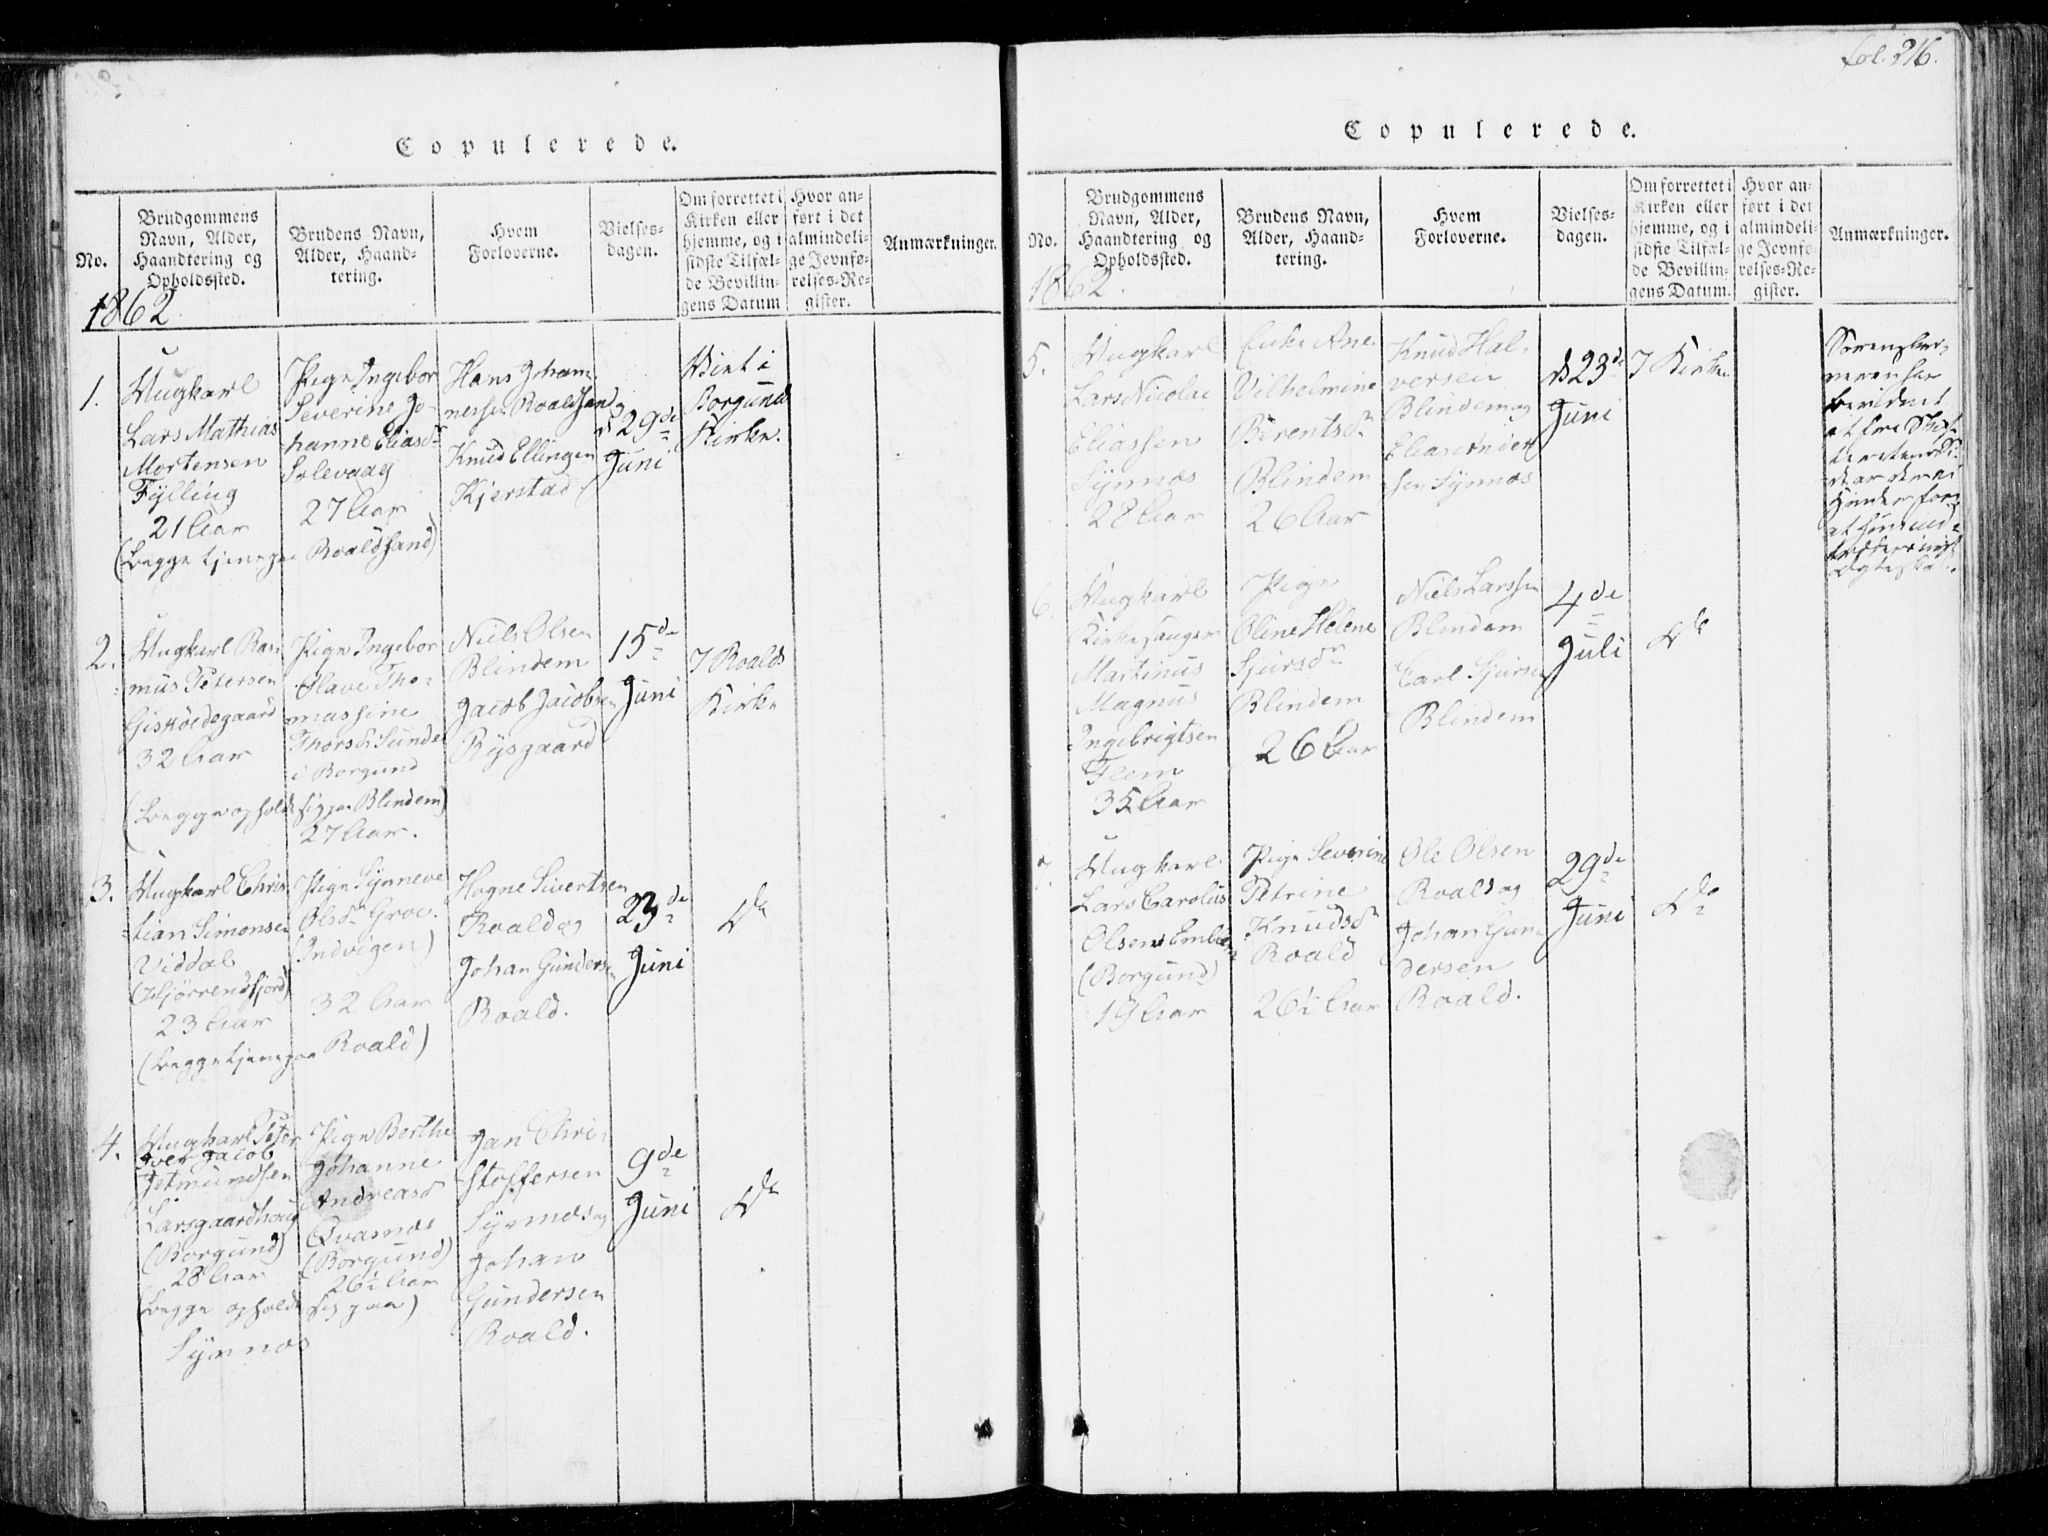 Copulerede.
No.
Brudgommens
Navn, Alder,
Haandtering og
Opholdssted.
Brudens Navn,
Alder, Haand-
tering.
Hvem
Forloverne.
Vielses-
dagen.
Om forrettet i
Kirken eller
hjemme, og i
sidste Tilfæl-
de Bevillin-
gens Datum
Hvor an-
ført i det
almindeli-
ge Jevnfø-
relses-Re-
gister.
Anmærkninger.
1862
1.
Ungkarl
Lars Mathias
Mortensen
Fylling
21 Aar
(begge tjene paa
Pige Ingebor
Severine Jo-
hanne Eliasdr
Solevaag
27 Aar
Roaldsand)
Hans Johan-
nessen Roaldsand og
Knud Ellingsen
Kjerstad
d 29de
Juni
Viet i
Borgunds
Kirke.
2.
Ungkarl Ras-
mus Petersen
Giskøedegaard
32 Aar
(begge opholde
Pige Ingebor
Olave Tho-
massine
Thorsdr Sunde
i Borgund
sig paa Blindem)
27 Aar.
Niels Olsen
Blindem
Jacob Jacobsen
Rysgaard
15de
Juni
I Roalds
Kirke
3.
Ungkarl Chris-
tian Simonsen
Viddal
(Hjørrendfjord)
23 Aar
(begge tjene paa
Pige Synneve
Olsdr Grov.
(Indvigen)
32 Aar
Roald)
Hogne Sivertsen
Roald og
Johan Gundersen
Roald.
23de
Juni
do
4.
Ungkarl Peter
Iver Jacob
Jetmundsen
Larsgaardhoug
(Borgund)
28 Aar
(begge opholde
Synnæs
Pige Berthe
Johanne
Andreasd
Qvasnæs
(Borgund)
26½ Aar
sig paa)
Jan Chri-
stoffersen
Synnæs og
Johan
Gundersen
Roald.
9de
Juni
do
fol. 216.
Copulerede.
No.
Brudgommens
Navn, Alder,
Haandtering og
Opholdssted.
Brudens Navn,
Alder, Haand-
tering.
Hvem
Forloverne.
Vielses-
dagen.
Om forrettet i
Kirken eller
hjemme, og i
sidste Tilfæl-
de Bevillin-
gens Datum.
Hvor an-
ført i det
almindeli-
ge Jevnfø-
relses-Re-
gister.
Anmærkninger.
1862.
5.
Ungkarl
Lars Nicolai
Eliassen
Synnæs
28 Aar
Enke Ane
Vilhelmine
Berentsdr
Blindem
26 Aar
Knud Hal-
versen
Blindem og
Elias Ander-
sen Synnæs
d 23de
Juni
I Kirken
Sorenskri-
veren har
bevidnet
at fra Skif-
terettens Si-
de er der ei
Hinder for
at hun ind-
træder i nyt
Ægteskab.
6.
Ungkarl
Kirkesanger
Martinus
Magnus
Ingebrigtsen
Flem
35 Aar
Pige
Oline Helene
Sjursdr
Blindem
26 Aar
Niels Larssen
Blindem
Carl Sjursen
Blindem
4de
Juli
do
7.
Ungkarl
Lars Carolus
Olsen
(Borgund)
19 Aar
Pige Severine
Petrine
Knudsdr
Roald
26½ Aar
Ole Olsen
Roald og
Johan Gun-
dersen
Roald.
29de
Juni
do